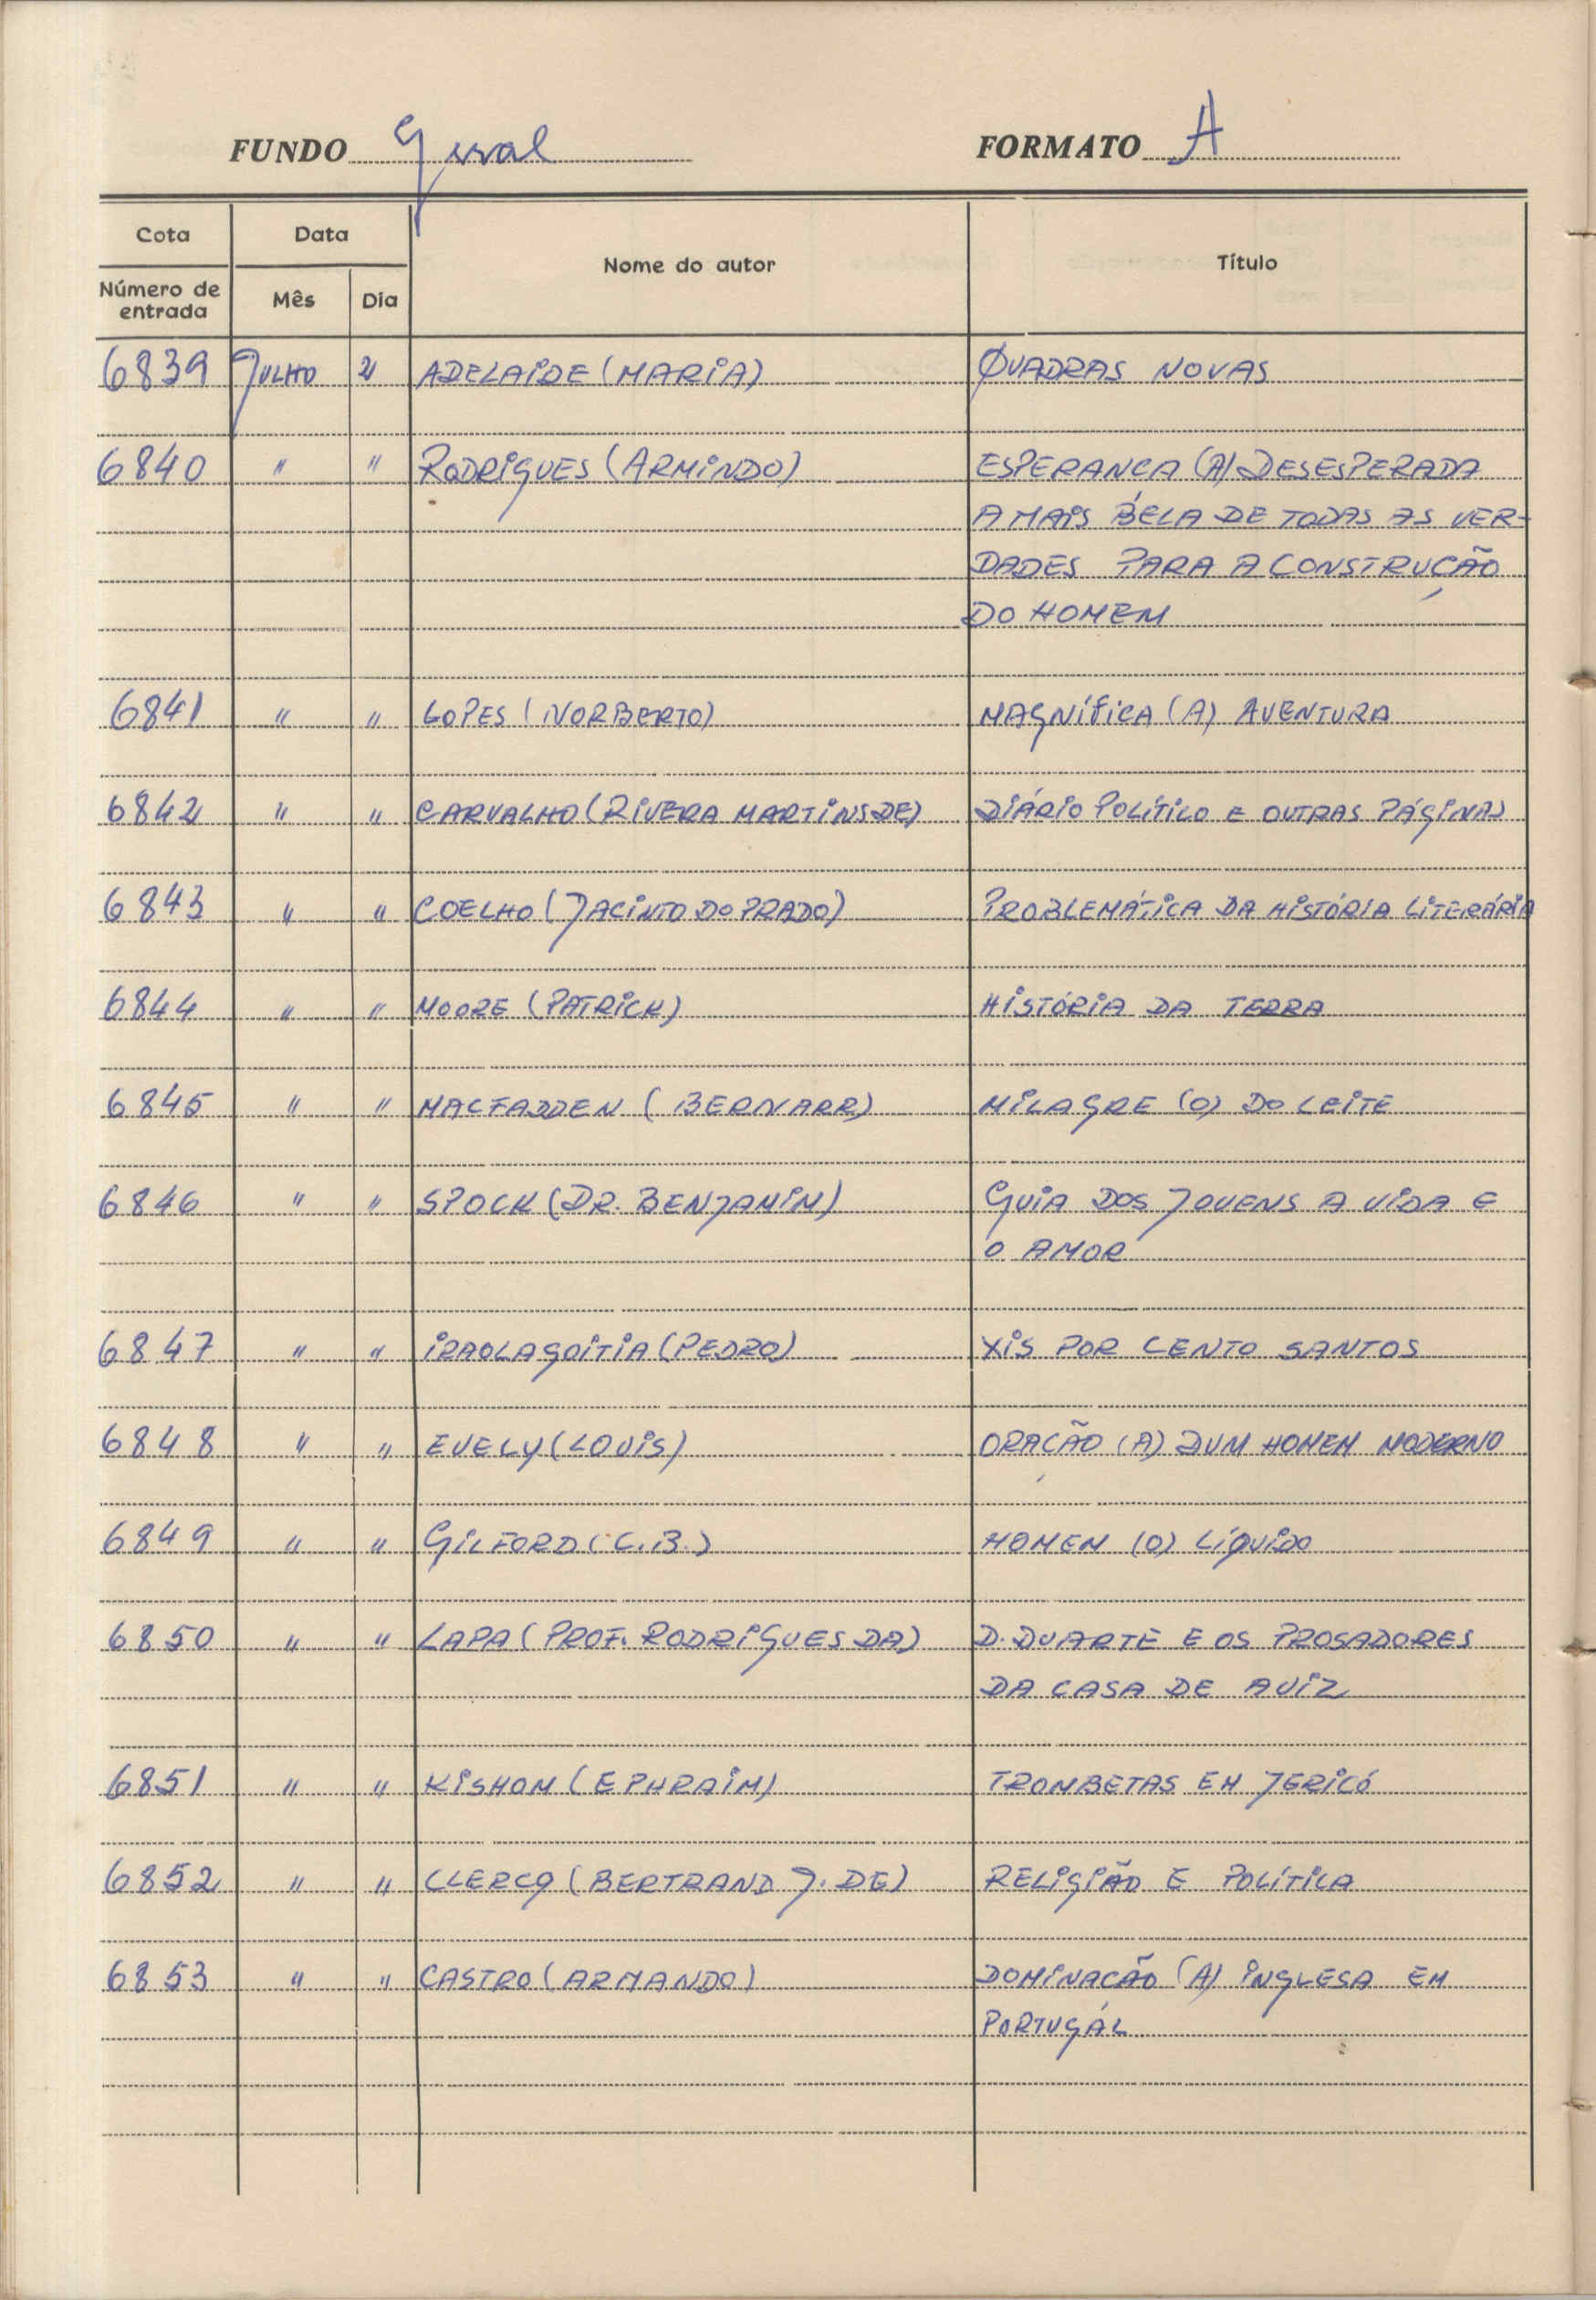 FUNDO Geral FORMATO A
Cota Data Nome do autor Título
Número de entrada Mês Dia
6839 JULHO 2 ADELAIDE (MARIA) QUADRAS NOVAS
6840 " " RODRIGUES (ARMINDO) ESPERANÇA (A) DESESPERADA
A MAIS BELA DE TODAS AS VER-
DADES PARA A CONSTRUÇÃO
DO HOMEM
6841 " " LOPES (NORBERTO) MAGNÍFICA (A) AVENTURA
6842 " " CARVALHO (RIVERA MARTINS DE) DIÁRIO POLÍTICO E OUTRAS PÁGINAS
6843 " " COELHO (JACINTO DO PRADO) PROBLEMÁTICA DA HISTÓRIA LITERÁRIA
6844 " " MOORE (PATRICK) HISTÓRIA DA TERRA
6845 " " MACFADDEN (BERNARR) MILAGRE (O) DO LEITE
6846 " " SPOCK (DR. BENJAMIN) GUIA DOS JOVENS A VIDA E
O AMOR
6847 " " IRAOLAGOITIA (PEDRO) XIS POR CENTO SANTOS
6848 " " EVELY (LOUIS) ORAÇÃO (A) DUM HOMEM MODERNO
6849 " " GILFORD (C.B.) HOMEN (O) LÍQUIDO
6850 " " LAPA (PROF. RODRIGUES DA) D. DUARTE E OS PROSADORES
DA CASA DE AVIZ
6851 " " KISHON (EPHRAIM) TROMBETAS EM JERICÓ
6852 " " CLERCQ (BERTRAND J. DE) RELIGIÃO E POLÍTICA
6853 " " CASTRO (ARMANDO) DOMINAÇÃO (A) INGLESA EM
PORTUGÁL